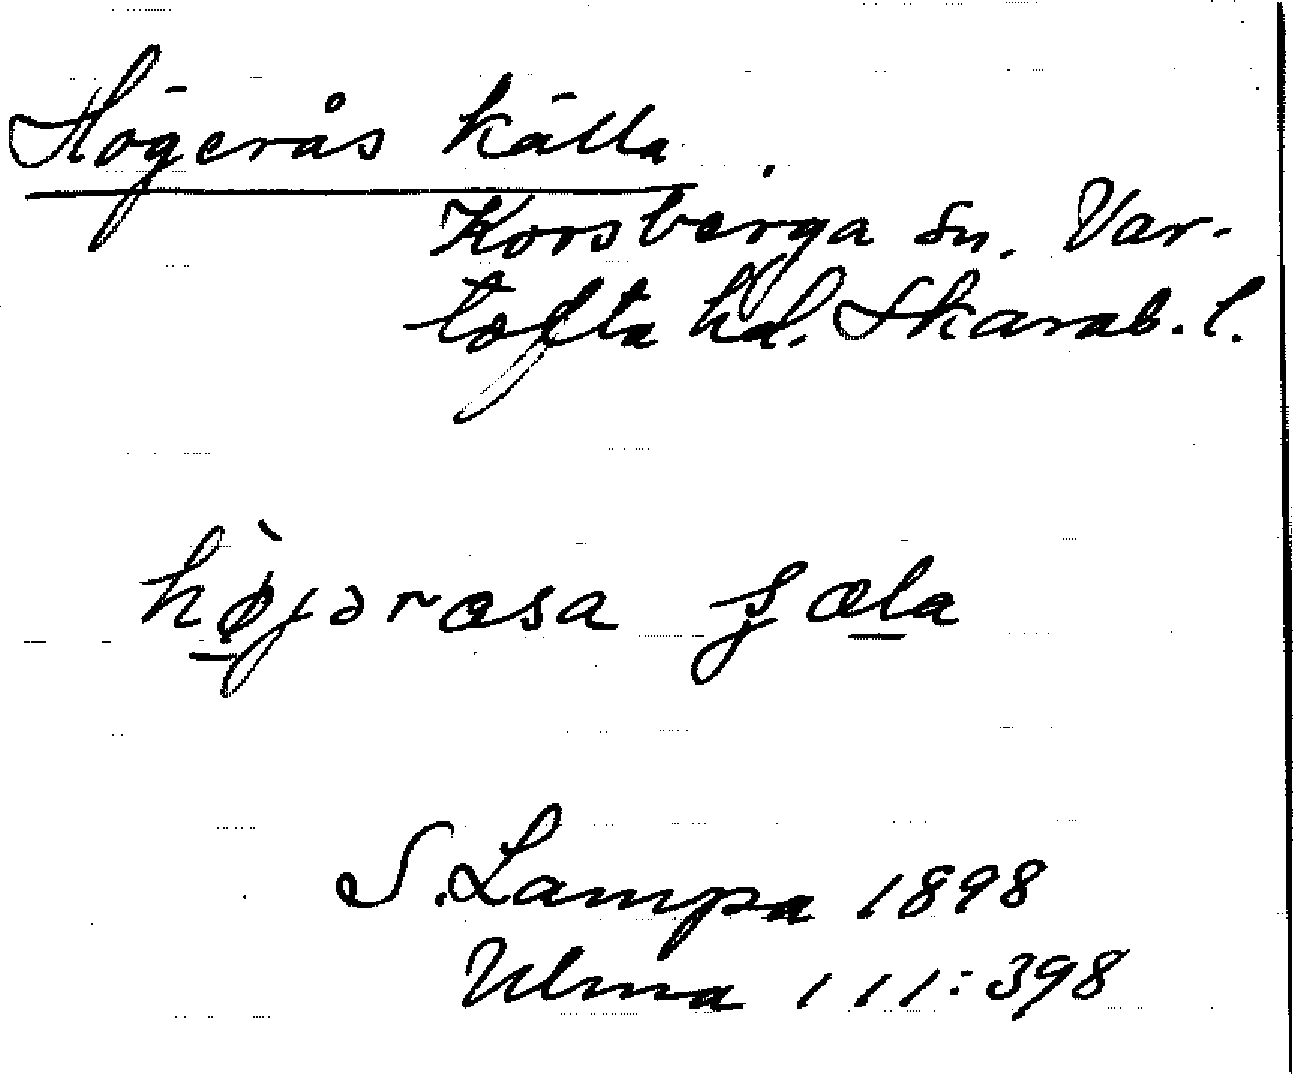 Högerås källa
Korsberga sn. Var-
tofta hd. Skarab. l.
hø̀jərasa ʂæla
S. Lampa 1898
Ulma 111:398